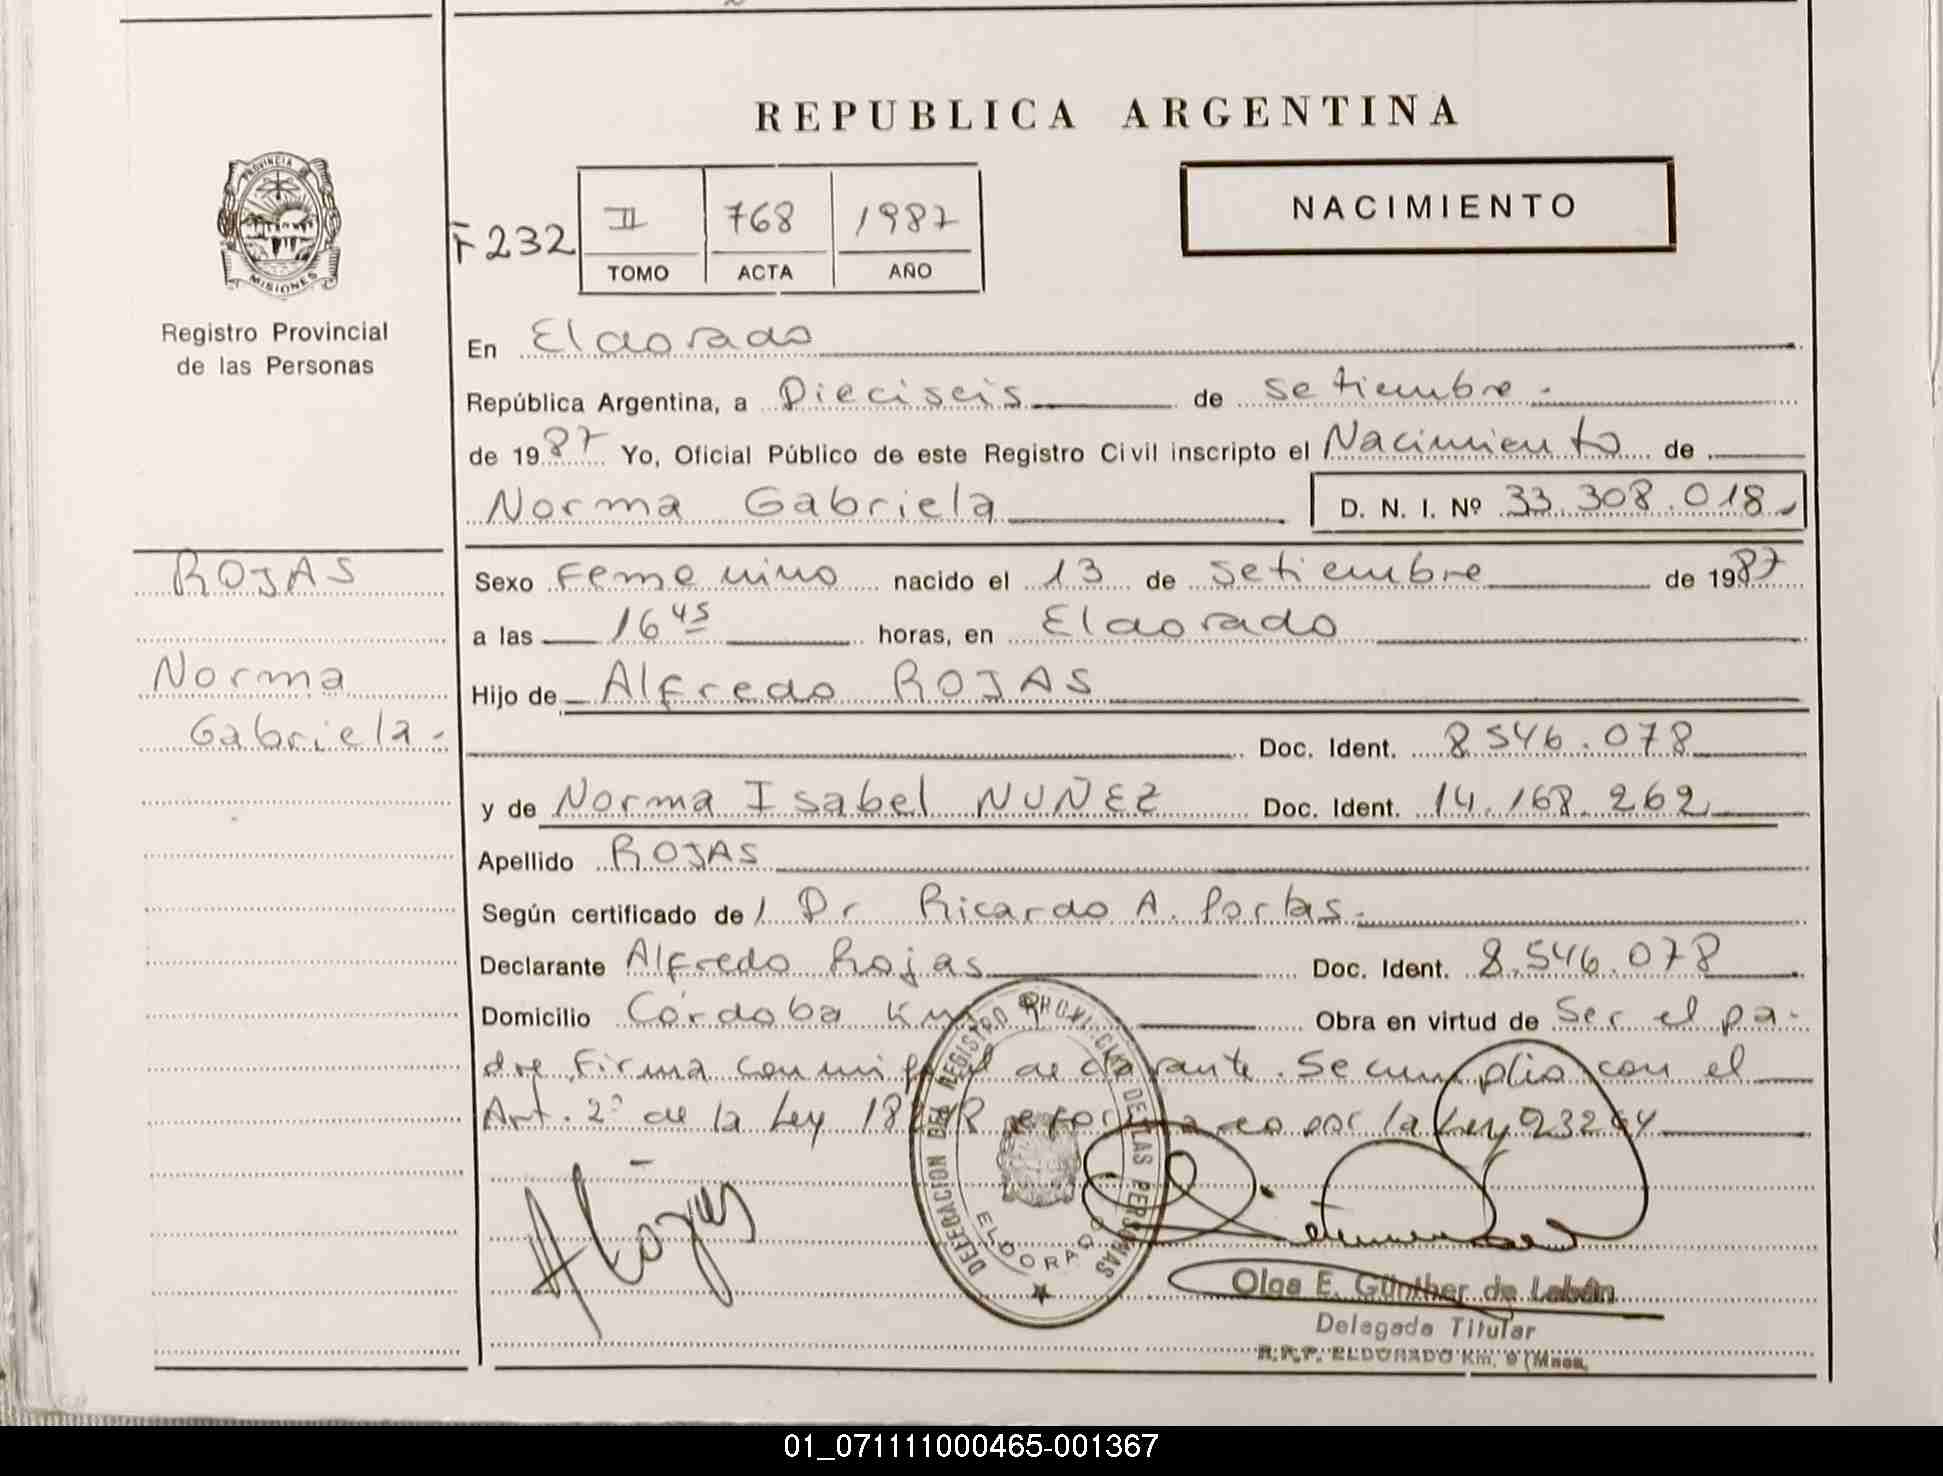 REPUBLICA ARGENTINA
PROVINCIA
MISIONES
Registro Provincial
de las Personas
F232
II 768 1987
TOMO ACTA AÑO
NACIMIENTO
En Eldorado
República Argentina, a Dieciseis de Setiembre.
de 1987 Yo, Oficial Público de este Registro Civil inscripto el Nacimiento de
Norma Gabriela D. N. I. Nº 33.308.018
ROJAS
Norma
Gabriela.
Sexo Femenino nacido el 13 de Setiembre de 1987
a las 16 45 horas, en Eldorado
Hijo de Alfredo ROJAS
Doc. Ident. 8546.078
y de Norma Isabel NUÑEZ Doc. Ident. 14.168.262
Apellido ROJAS
Según certificado de Dr Ricardo A. Portas.
Declarante Alfredo Rojas Doc. Ident. 8.546.078
Domicilio Córdoba Km Obra en virtud de Ser el pa-
dre Firma conmigo el declarante. Se cumplio con el
Art. 2º de la Ley por la Ley 23264
DELEGACION DEL REGISTRO PROVINCIAL DE LAS PERSONAS
ELDORADO
A Rojas
Olga E. Günther de Lobán
Delegada Titular
R.P.P. ELDORADO Km. 9 (Mnes.
01_071111000465-001367